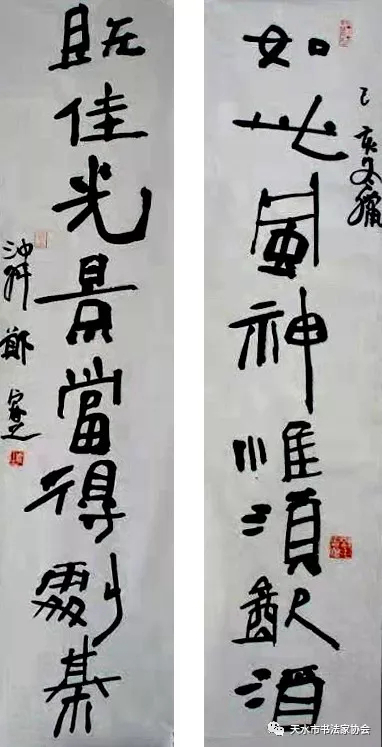 己亥冬臘
如此風神惟須飲酒
既佳光景當得劇棊
鄭
天水市书法家协会